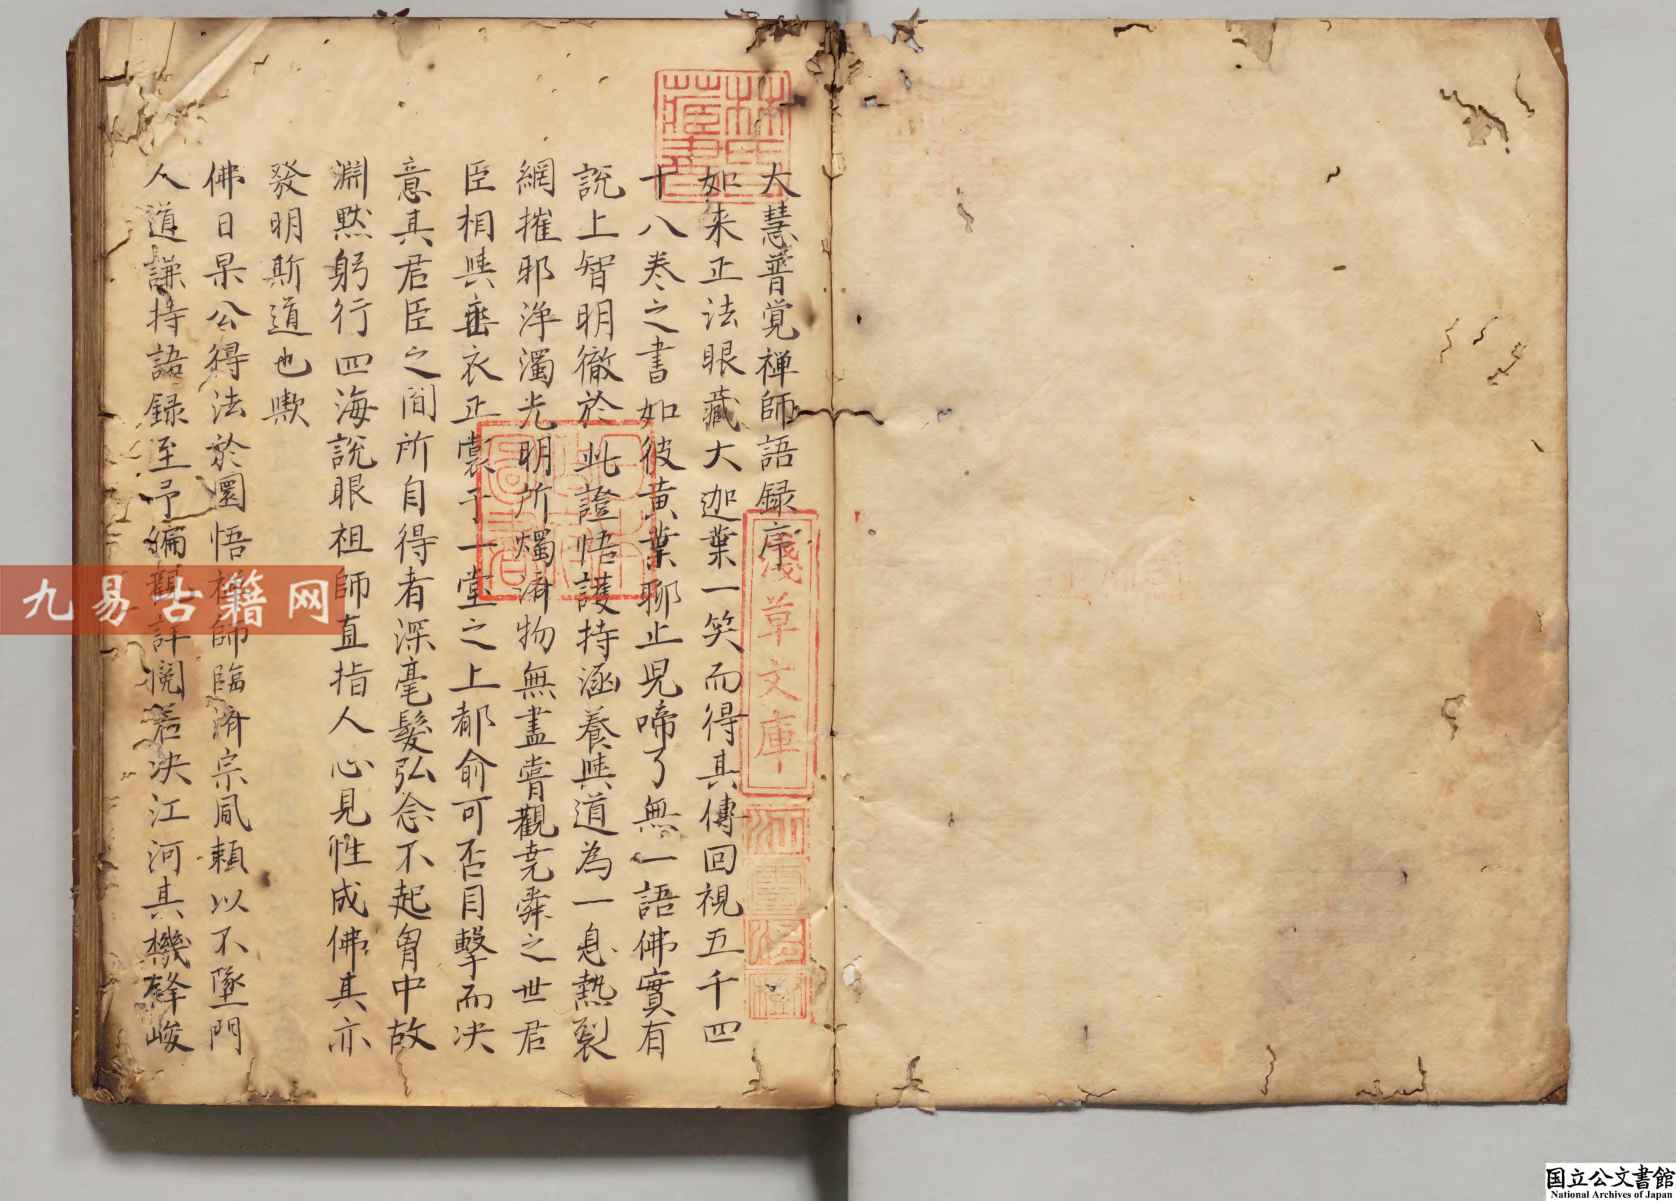 大慧普覚禅師語録序
如来正法眼藏大迦葉一笑而得其傳回視五千四
十八卷之書如彼黄葉聊止児啼了無一語佛實有
説上智明徹於此證悟護持涵養與道為一息熱裂
網摧邪浄濁光明所燭濟物無盡嘗觀尭舜之世君
臣相與垂衣正裳于一堂之上都俞可否目擊而决
意其君臣之間所自得者深毫髮弘念不起胷中故
淵黙躬行四海說眼祖師直指人心見性成佛其亦
發明斯道也歟
佛日杲公得法於圜悟禅師臨濟宗風頼以不墜門
人道謙持語録至予編觀詳閲若决江河其機鋒峻
林氏藏書
淺草文庫
九易古籍网
国立公文書館
National Archives of Japan